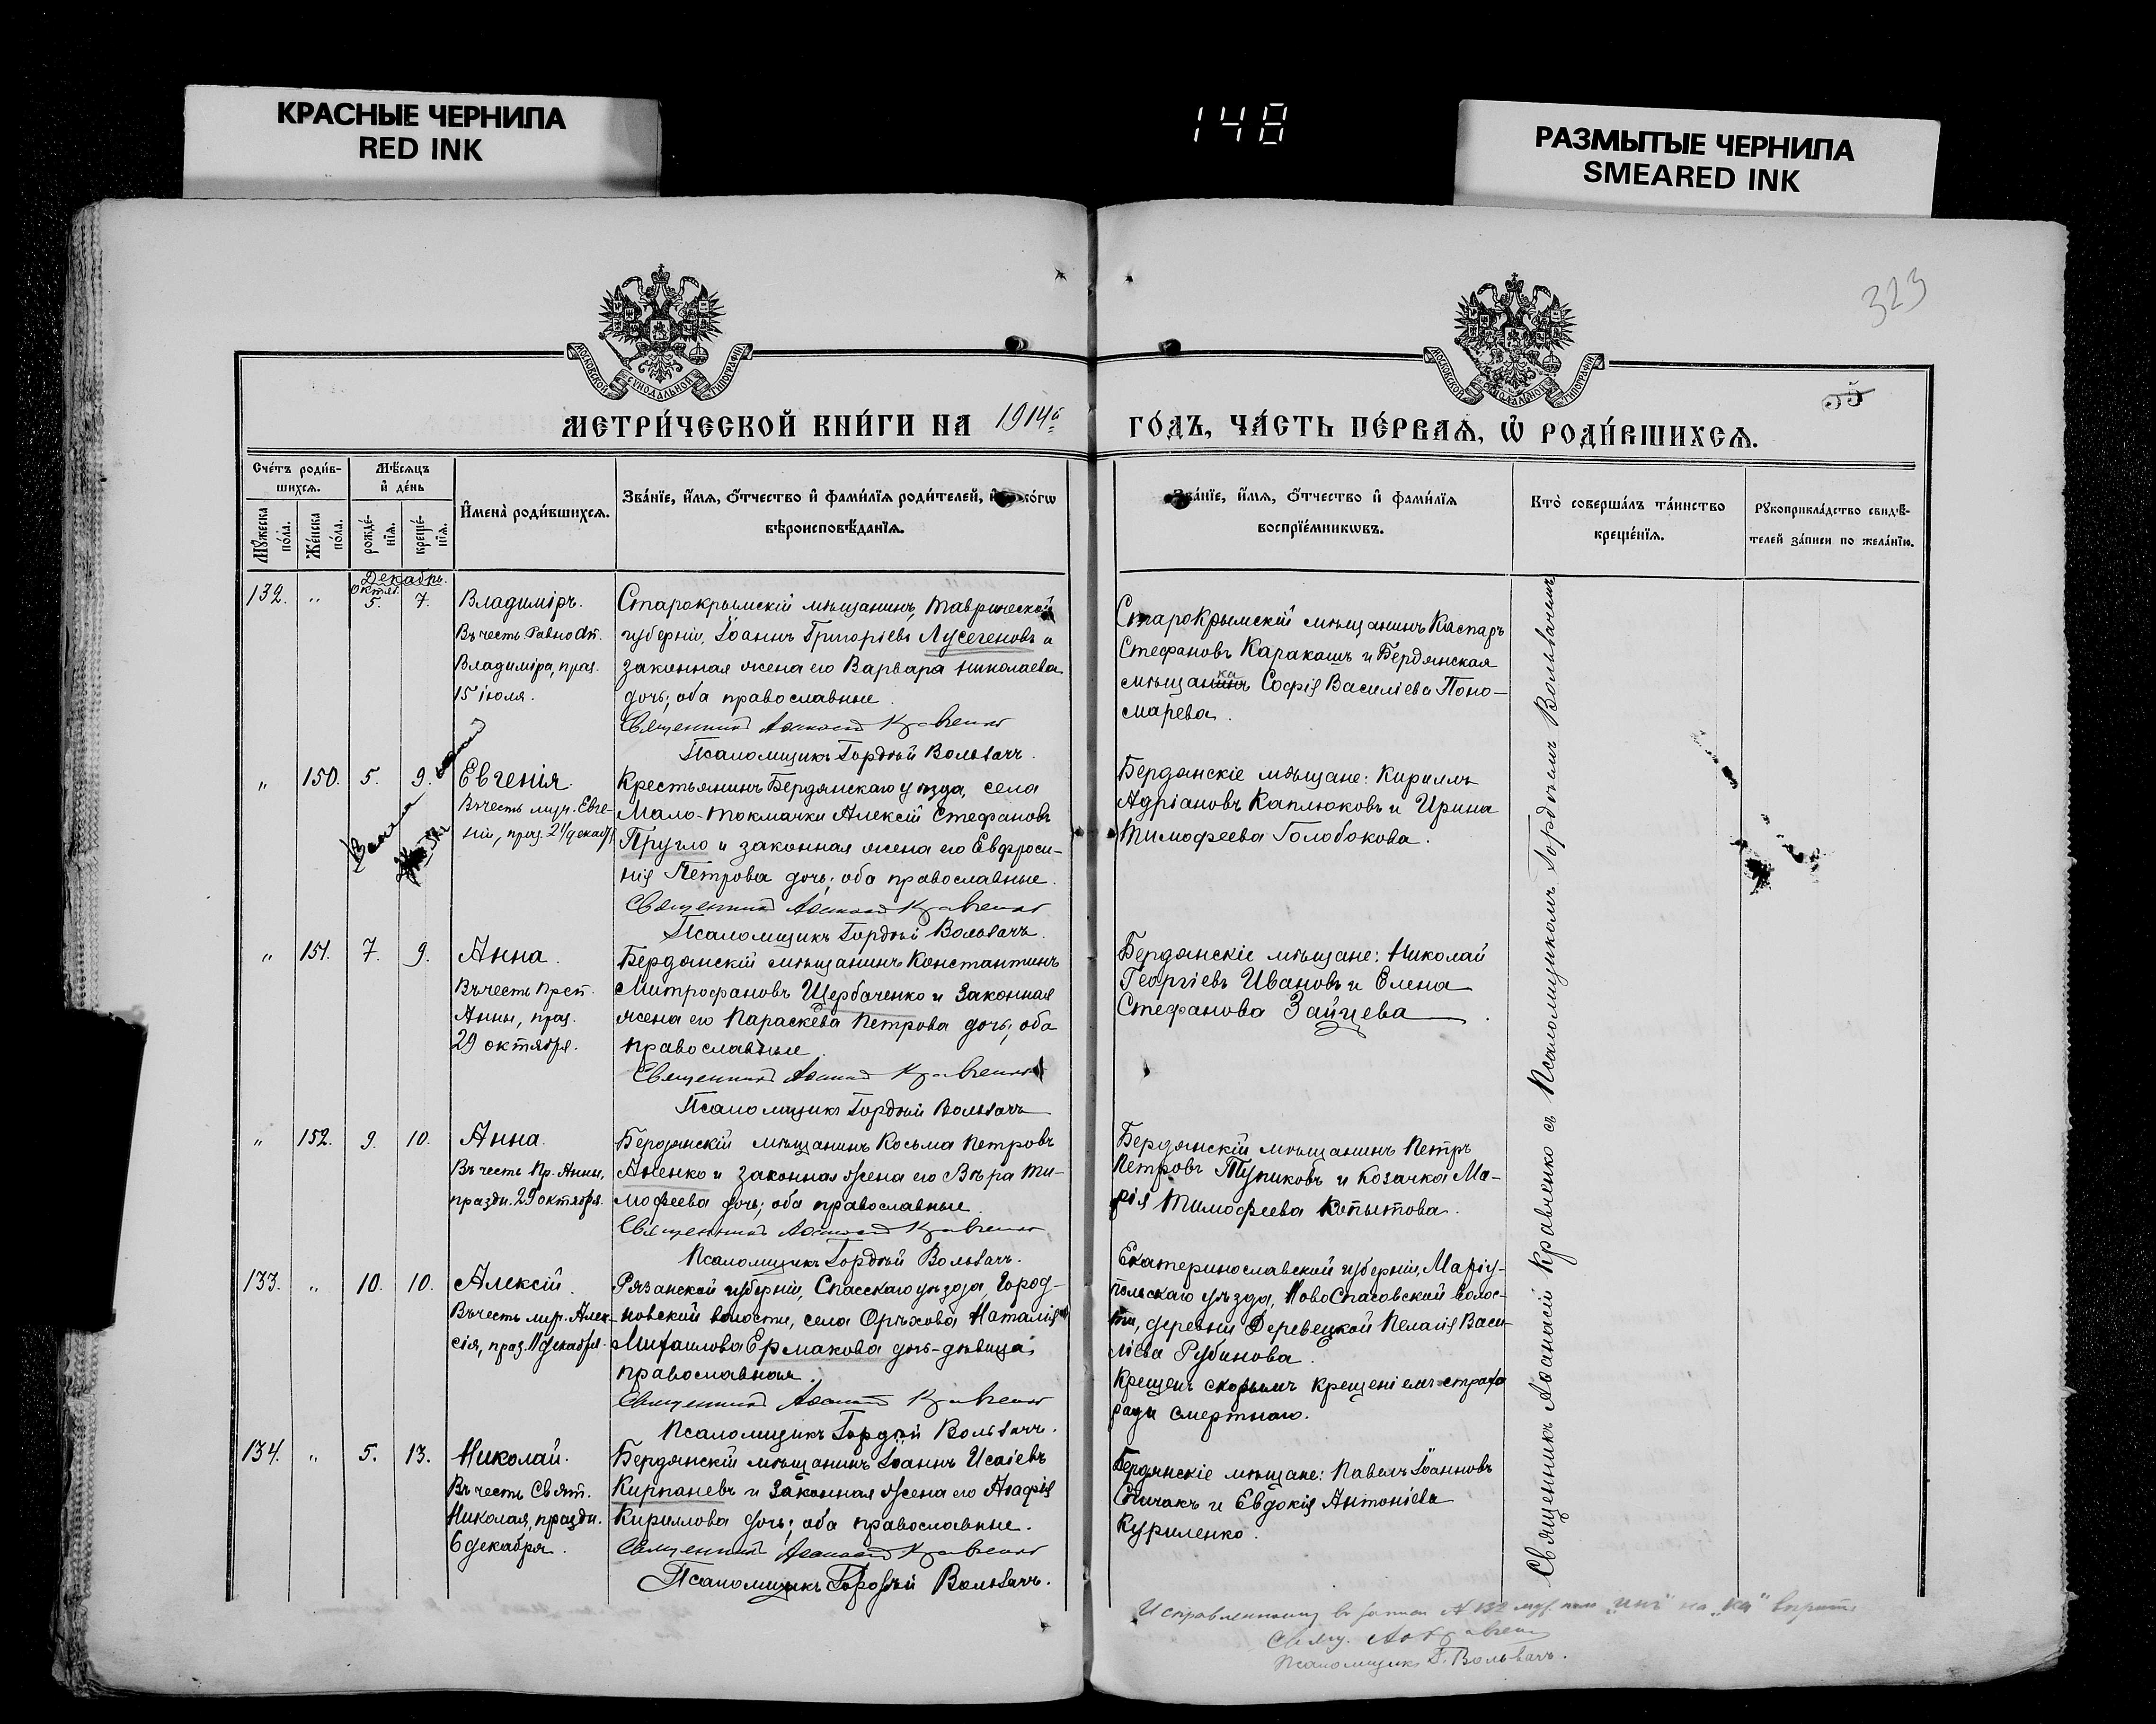 КРАСНЫЕ ЧЕРНИЛА
RED INK
148
РАЗМЫТЫЕ ЧЕРНИЛА
SMEARED INK
323
55
МОСКОВСКОЙ СѴНОДАЛЬНОЙ ТИПОГРАФІИ
МОСКОВСКОЙ СѴНОДАЛЬНОЙ ТИПОГРАФІИ
МЕТРИ́ЧЕСКОЙ КНИ́ГИ НА 1914й ГО́ДЪ, ЧА́СТЬ ПЕ́РВАѦ, Ѽ РОДИ́ВШИХСѦ.
Сче́тъ роди́в-
шихсѧ.
Мꙋ́жеска
по́ла.
Же́нска
по́ла.
Мѣ́сѧцъ
и҆ де́нь
рожде́-
нїѧ.
креще́-
нїѧ.
И҆мена̀ роди́вшихсѧ.
Зва́нїе, и҆́мѧ, ѻ҆́тчество и҆ фами́лїѧ роди́телей, и҆ ко́гѡ
вѣроисповѣ́данїѧ.
Зва́нїе, и҆́мѧ, ѻ҆́тчество и҆ фами́лїѧ
воспрїе́мникѡвъ.
Кто̀ соверша́лъ та́инство
креще́нїѧ.
Рꙋкоприкла́дство свидѣ́-
телей за́писи по жела́нїю.
Декабрь.
Октяб.
132. „ 5. 7. Владиміръ.
Въ честь Равноап.
Владиміра, праз.
15 іюля.
Старокрымскій мѣщанинъ, Таврической
губерніи, Іоаннъ Григоріевъ Лусегеновъ и
законная жена его Варвара Николаева
дочь; оба православные.
Священникъ Аѳанасій Кравченко
Псаломщикъ Гордѣй Вольвачъ.
СтароКрымскій мѣщанинъ Каспаръ
Стефановъ Каракашъ и Бердянская
мѣщанинъ ка Софія Василіева Поно-
марева.
„ 150. 5. 9. Евгенія.
Въ честь муч. Евге-
ніи, праз. 24 декаб.
Крестьянинъ Бердянскаго уѣзда, села
Мало-Токмачки Алексій Стефановъ
Пругло и законная жена его Евфроси-
нія Петрова дочь; оба православные.
Священникъ Аѳанасій Кравченко
Псаломщикъ Гордѣй Вольвачъ.
Бердянскіе мѣщане: Кириллъ
Адріановъ Каплюковъ и Ирина
Тимофеева Голобокова.
„ 151. 7. 9. Анна.
Въ честь Преп.
Анны, праз.
29 октября.
Бердянскій мѣщанинъ Константинъ
Митрофановъ Щербаченко и законная
жена его Параскева Петрова дочь; оба
православные.
Священникъ Аѳанасій Кравченко
Псаломщикъ Гордѣй Вольвачъ
Бердянскіе мѣщане: Николай
Георгіевъ Ивановъ и Елена
Стефанова Зайцева.
„ 152. 9. 10. Анна.
Въ честь Пр. Анны,
праздн. 29 октября.
Бердянскій мѣщанинъ Косьма Петровъ
Аненко и законная жена его Вѣра Ти-
мофеева дочь; оба православные.
Священникъ Аѳанасій Кравченко
Псаломщикъ Гордѣй Вольвачъ.
Бердянскій мѣщанинъ Петръ
Петровъ Тупиковъ и Козачка Ма-
рія Тимофеева Копытова.
133. „ 10. 10. Алексій.
Въ честь муч. Алек-
сія, праз. 11 декабря.
Рязанской губерніи, Спасскаго уѣзда, Город-
новской волости, села Орѣхова Наталія
Михаилова Ермакова дочь-дѣвица,
православная.
Священникъ Аѳанасій Кравченко
Псаломщикъ Гордѣй Вольвачъ.
Екатеринославской губерніи, Маріу-
польскаго уѣзда, НовоСпасовской волос-
ти, деревни Деревецкой Пелагія Васи-
ліева Рубинова.
Крещенъ скорымъ крещеніемъ страха
ради смертнаго.
134. „ 5. 13. Николай.
Въ честь Свят.
Николая, праздн.
6 декабря.
Бердянскій мѣщанинъ Іоаннъ Исаіевъ
Кирпаневъ и законная жена его Агафія
Кириллова дочь; оба православные.
Священникъ Аѳанасій Кравченко
Псаломщикъ Гордѣй Вольвачъ.
Бердянскіе мѣщане: Павелъ Іоанновъ
Спичакъ и Евдокія Антоніева
Куриленко.
Священникъ Аѳанасій Кравченко съ Псаломщикомъ Гордѣемъ Вольвачемъ
Исправленному въ записи № 132 „инъ" на „ка" вѣрить
Свящ. Аѳ. Кравченко
Псаломщикъ Г. Вольвачъ.